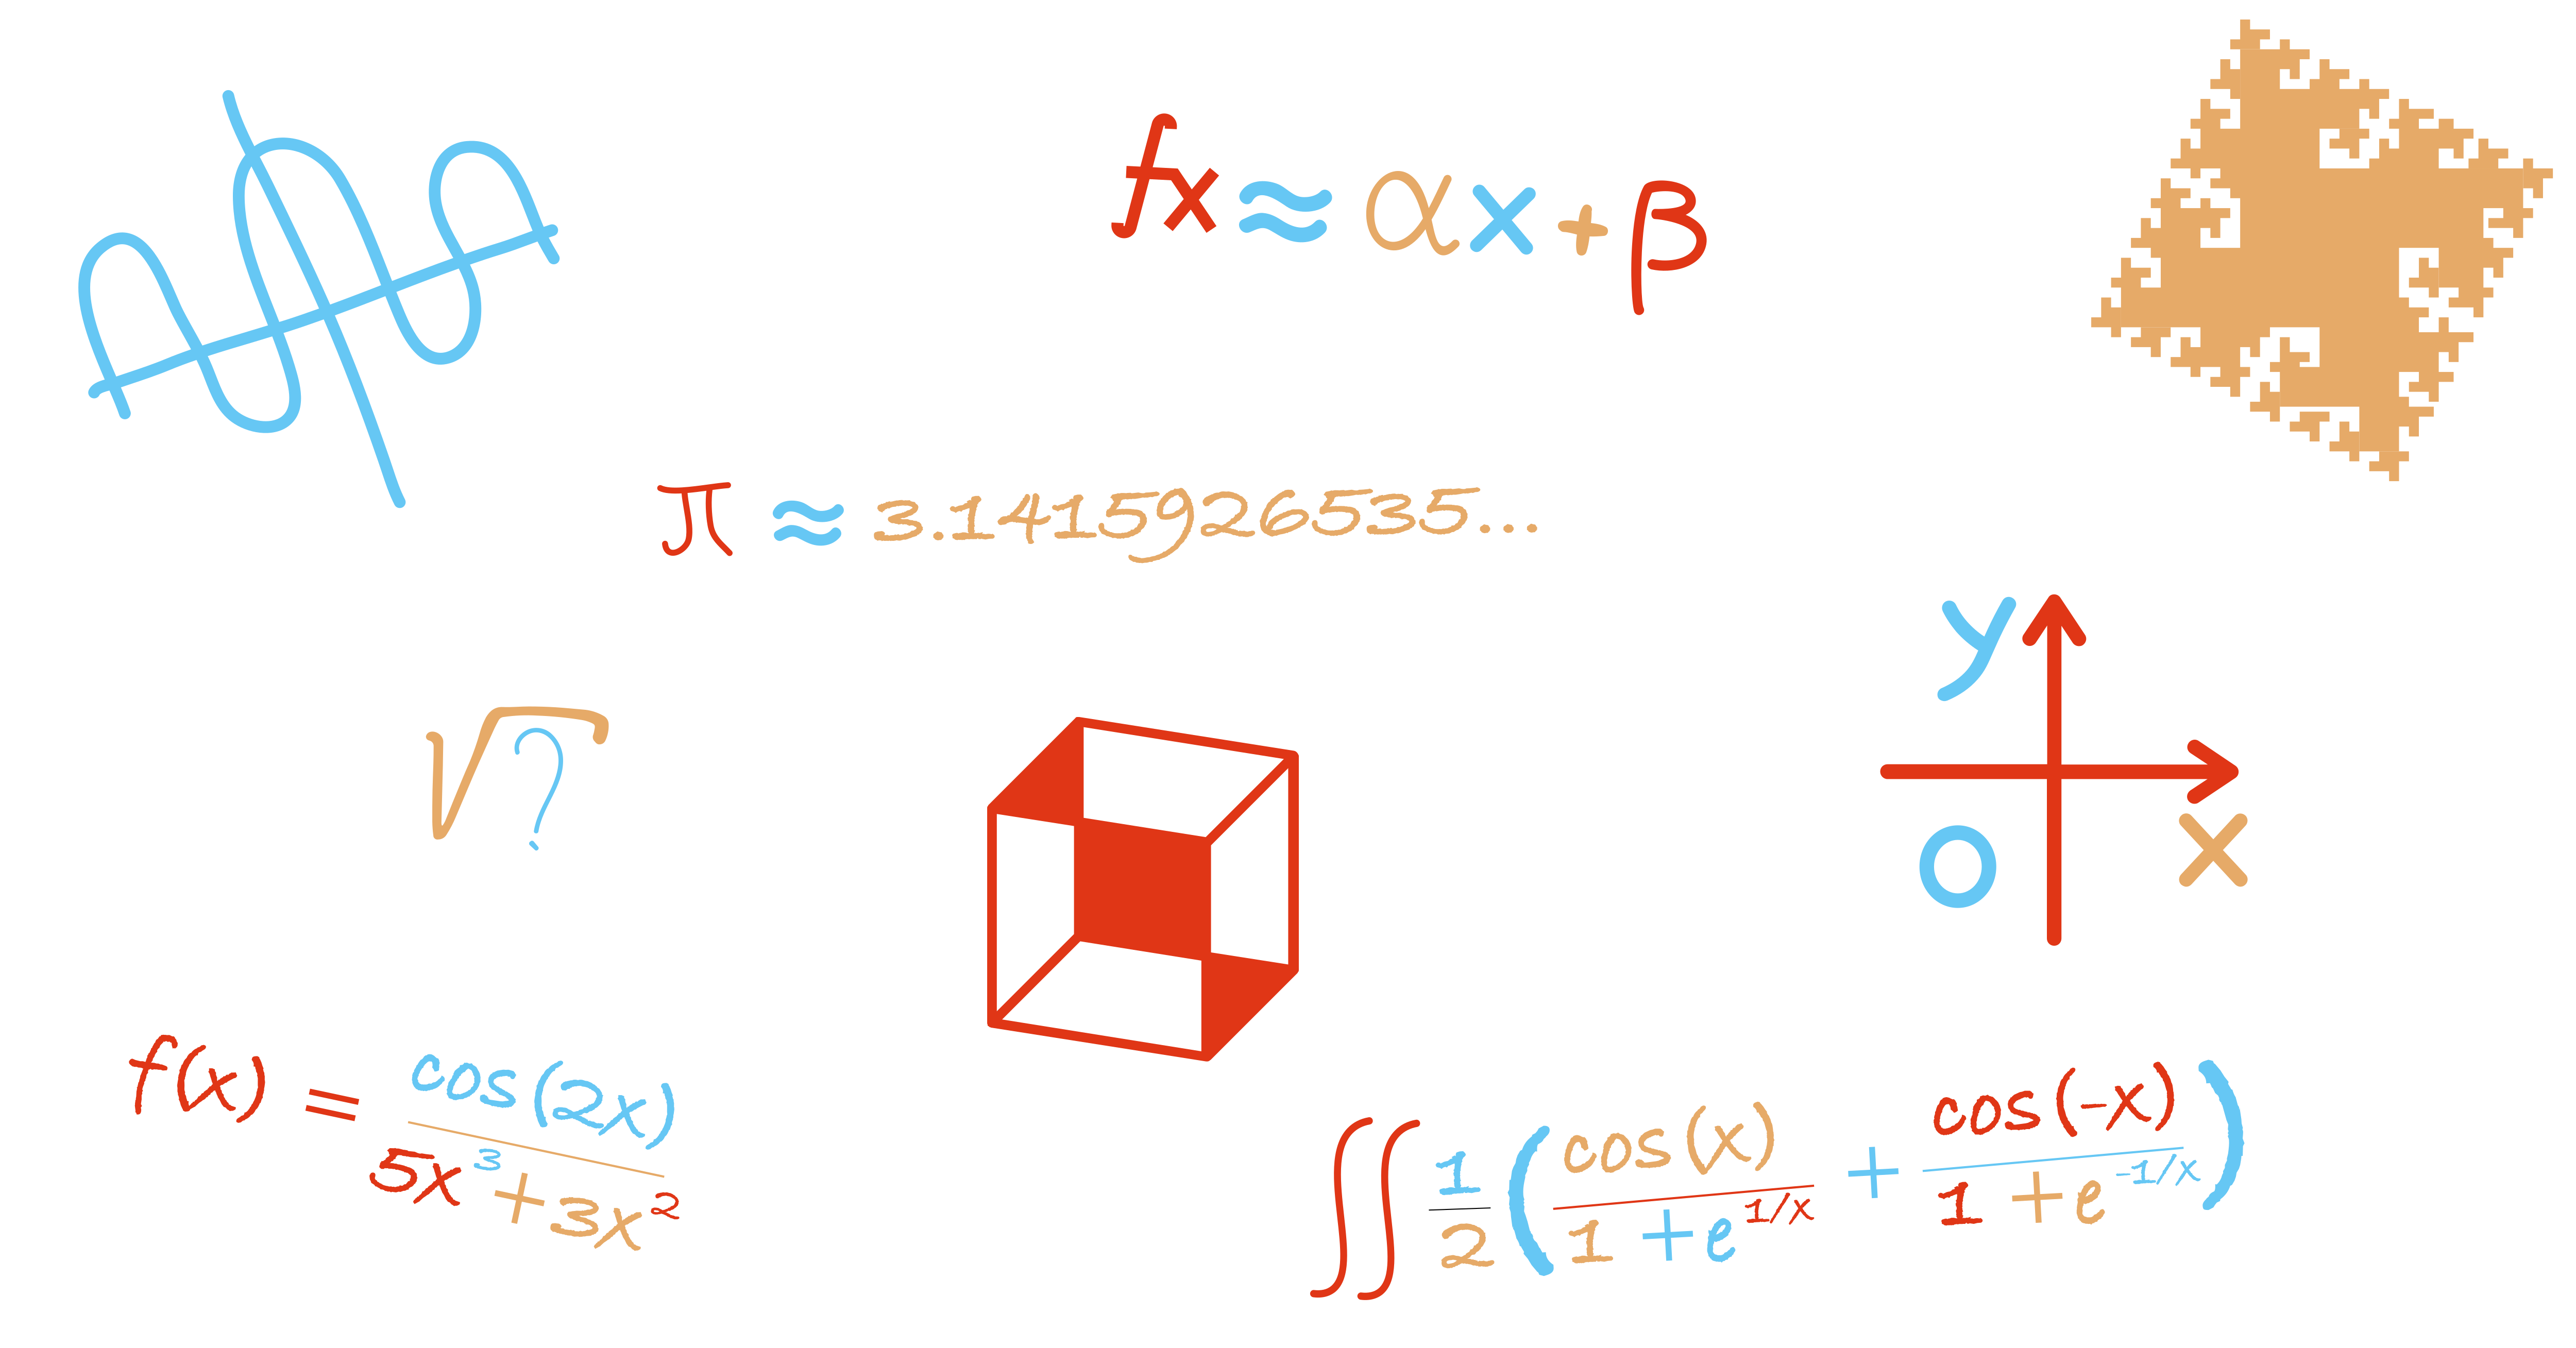 fx ≈ αx + β
π ≈ 3.1415926535...
y
√?
O x
f(x) = cos(2x) / 5x³ + 3x²
∬ 1/2 (cos(x) / 1 + e^1/x + cos(-x) / 1 + e^-1/x)